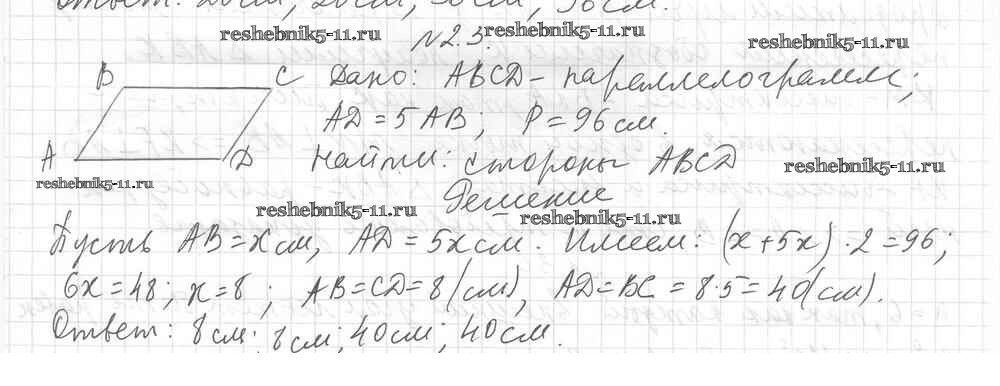 Ответ: 20 см, 20 см,
reshebnik5-11.ru
№2.3.
reshebnik5-11.ru
reshebnik5-11.ru
B
C
Дано: ABCD – параллелограмм;
AD = 5 AB; P = 96 см.
A
D
Найти: стороны ABCD
reshebnik5-11.ru
reshebnik5-11.ru
Решение
reshebnik5-11.ru
reshebnik5-11.ru
Пусть AB = x см, AD = 5x см. Имеем: (x + 5x) · 2 = 96;
6x = 48; x = 8; AB = CD = 8 (см), AD = BC = 8 · 5 = 40 (см).
Ответ: 8 см; 8 см; 40 см; 40 см.